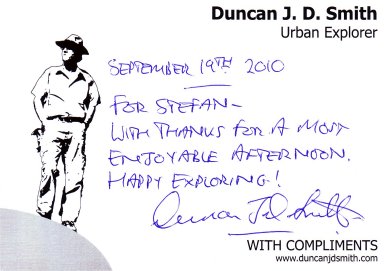 Duncan J. D. Smith
Urban Explorer
SEPTEMBER 19TH 2010
FOR STEFAN-
WITH THANKS FOR A MOST
ENJOYABLE AFTERNOON.
HAPPY EXPLORING!
Duncan J.D. Smith
WITH COMPLIMENTS
www.duncanjdsmith.com